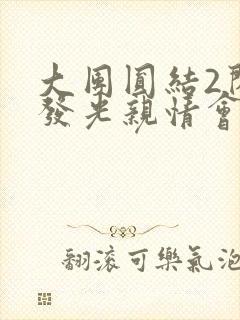 大團圓結2
發光親情會
翻滾可樂氣泡